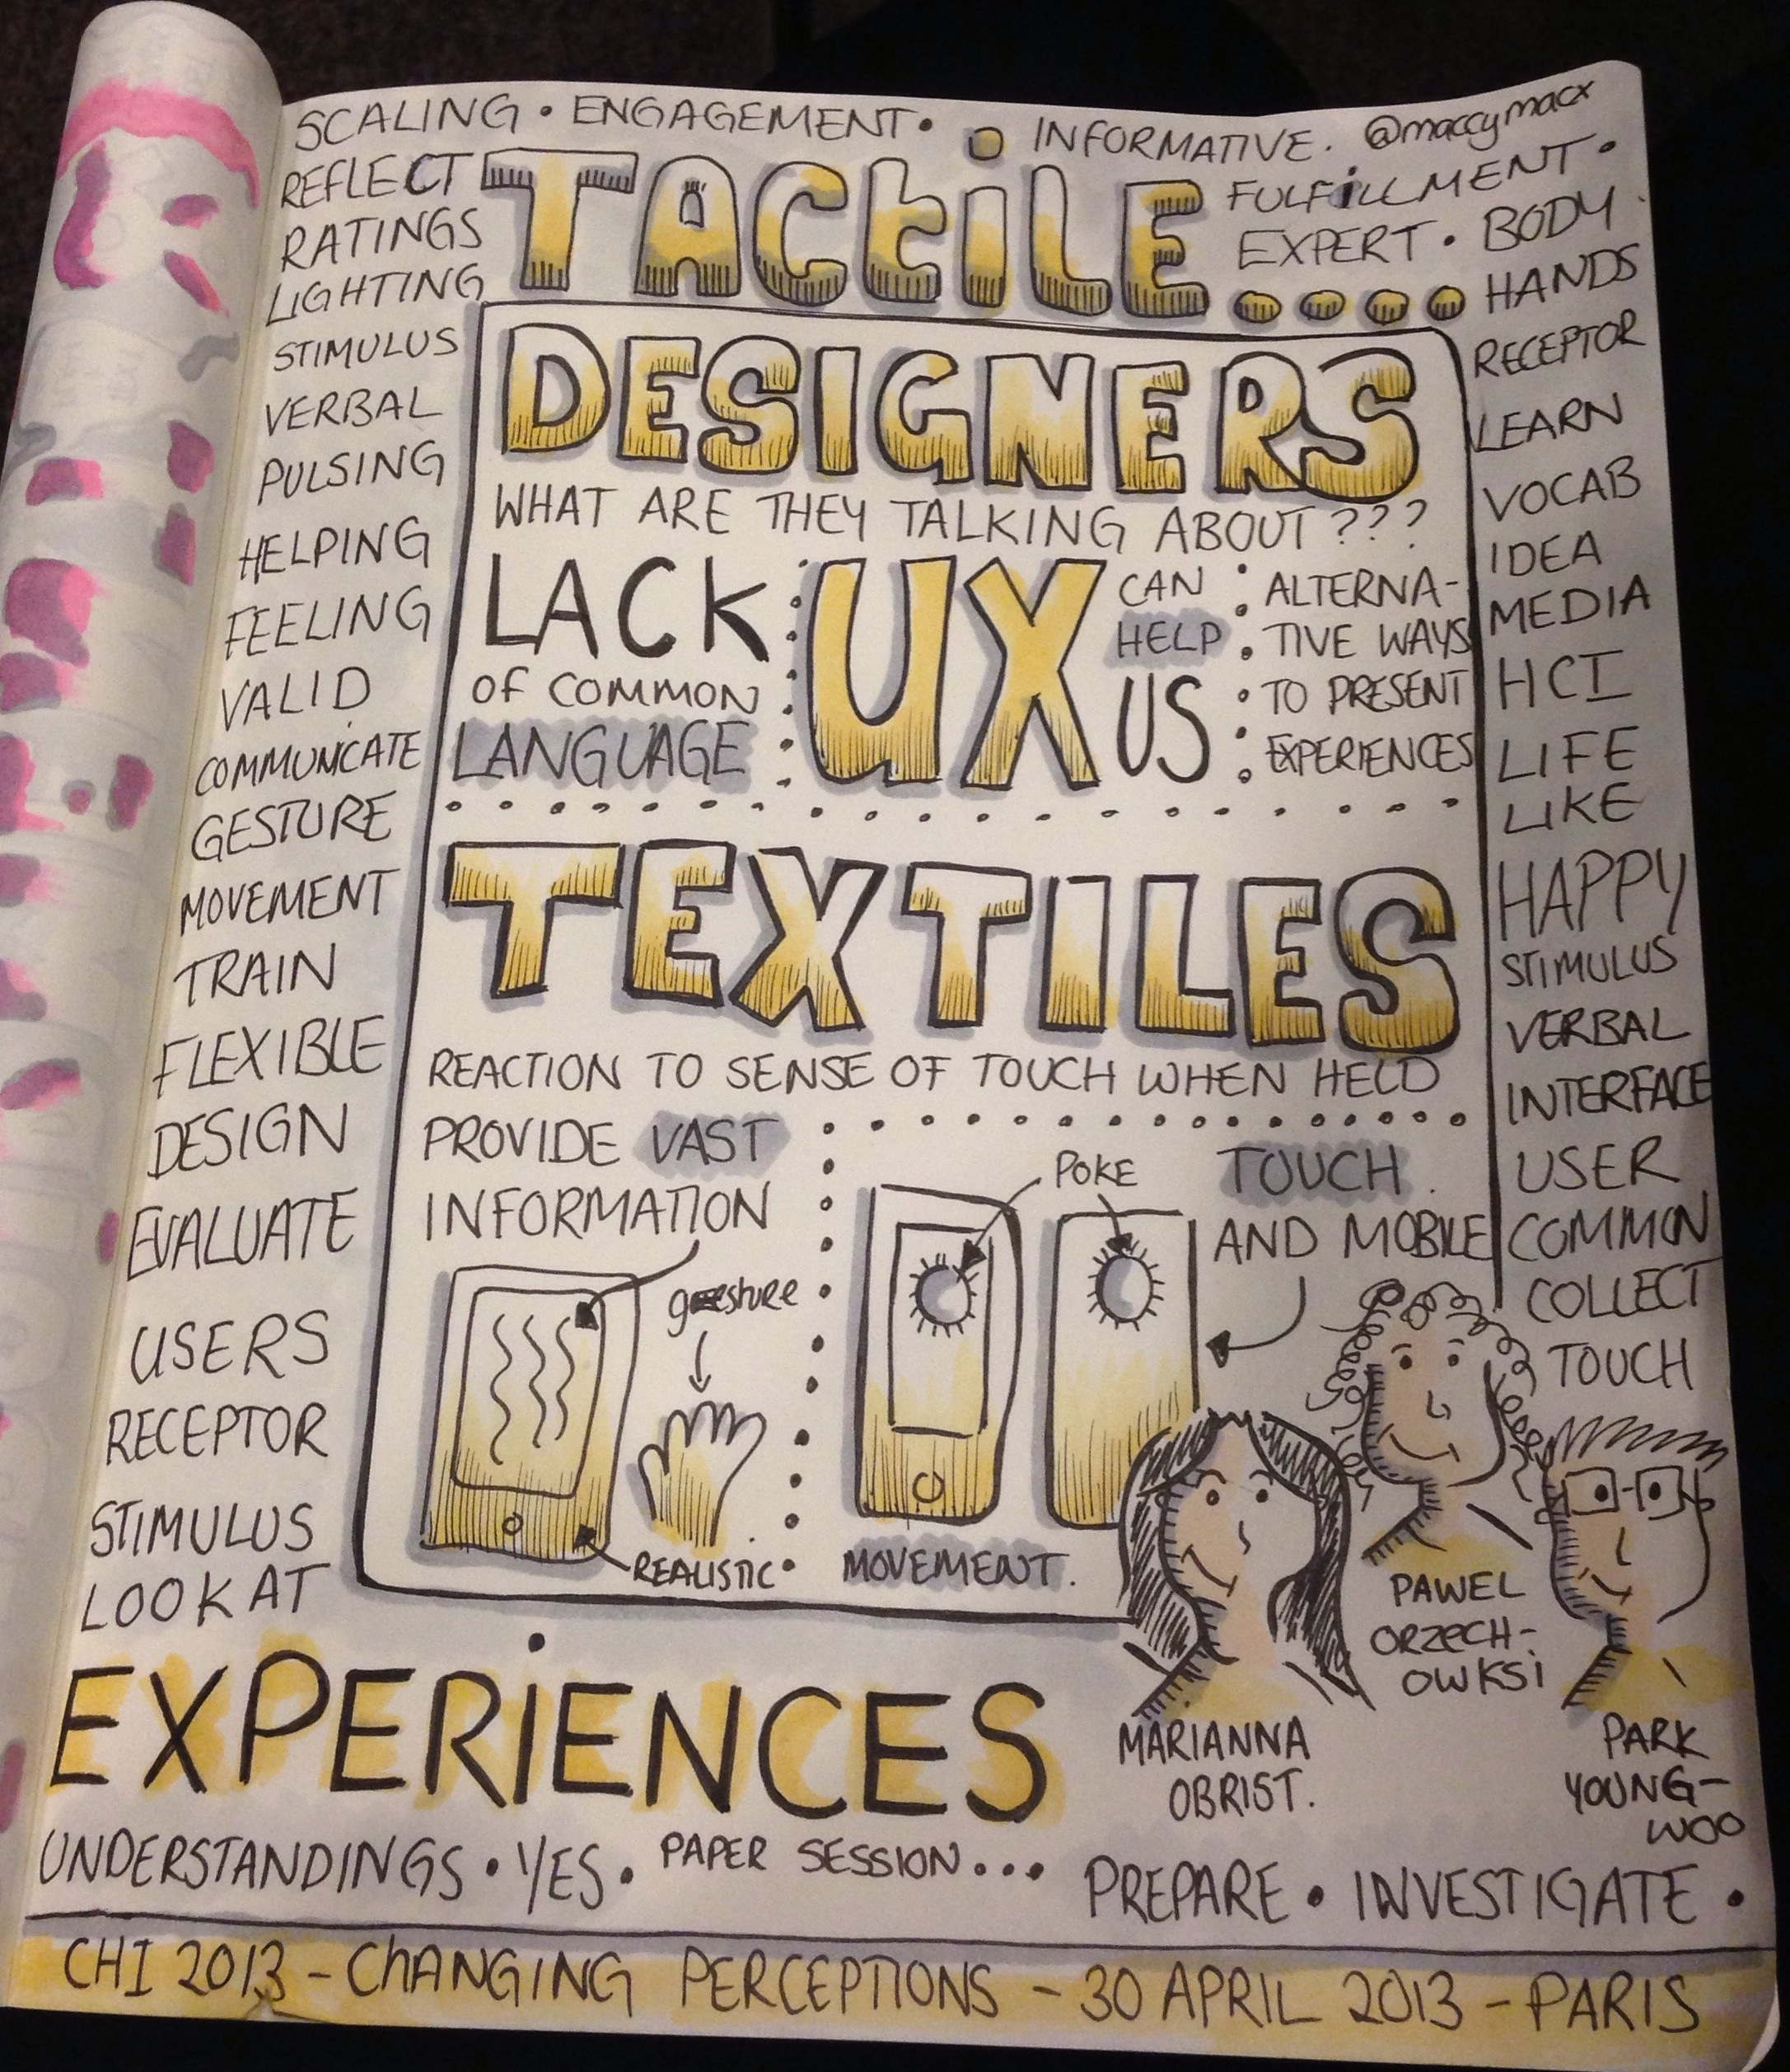 SCALING • ENGAGEMENT •
INFORMATIVE. @maccymacx
REFLECT
RATINGS
LIGHTING
STIMULUS
VERBAL
PULSING
HELPING
FEELING
VALID
COMMUNICATE
GESTURE
MOVEMENT
TRAIN
FLEXIBLE
DESIGN
EVALUATE
USERS
RECEPTOR
STIMULUS
LOOK AT
TACtiLE....
FULFiLLMENT •
EXPERT • BODY
HANDS
RECEPTOR
LEARN
VOCAB
IDEA
MEDIA
HCI
LIFE
LIKE
HAPPY
STIMULUS
VERBAL
INTERFACE
USER
COMMON
COLLECT
TOUCH
DESIGNERS
WHAT ARE THEY TALKING ABOUT ???
LACK
OF COMMON
LANGUAGE
UX
CAN
HELP
US
ALTERNA-
TIVE WAYS
TO PRESENT
EXPERIENCES
TEXTILES
REACTION TO SENSE OF TOUCH WHEN HELD
PROVIDE VAST
INFORMATION
gesture
REALISTIC
POKE
TOUCH
AND MOBILE
MOVEMENT.
MARIANNA
OBRIST.
PAWEL
ORZECH-
OWKSi
PARK
YOUNG-
WOO
EXPERiENCES
UNDERSTANDINGS • YES • PAPER SESSION...
PREPARE • INVESTIGATE •
CHI 2013 - CHANGING PERCEPTIONS - 30 APRIL 2013 - PARIS